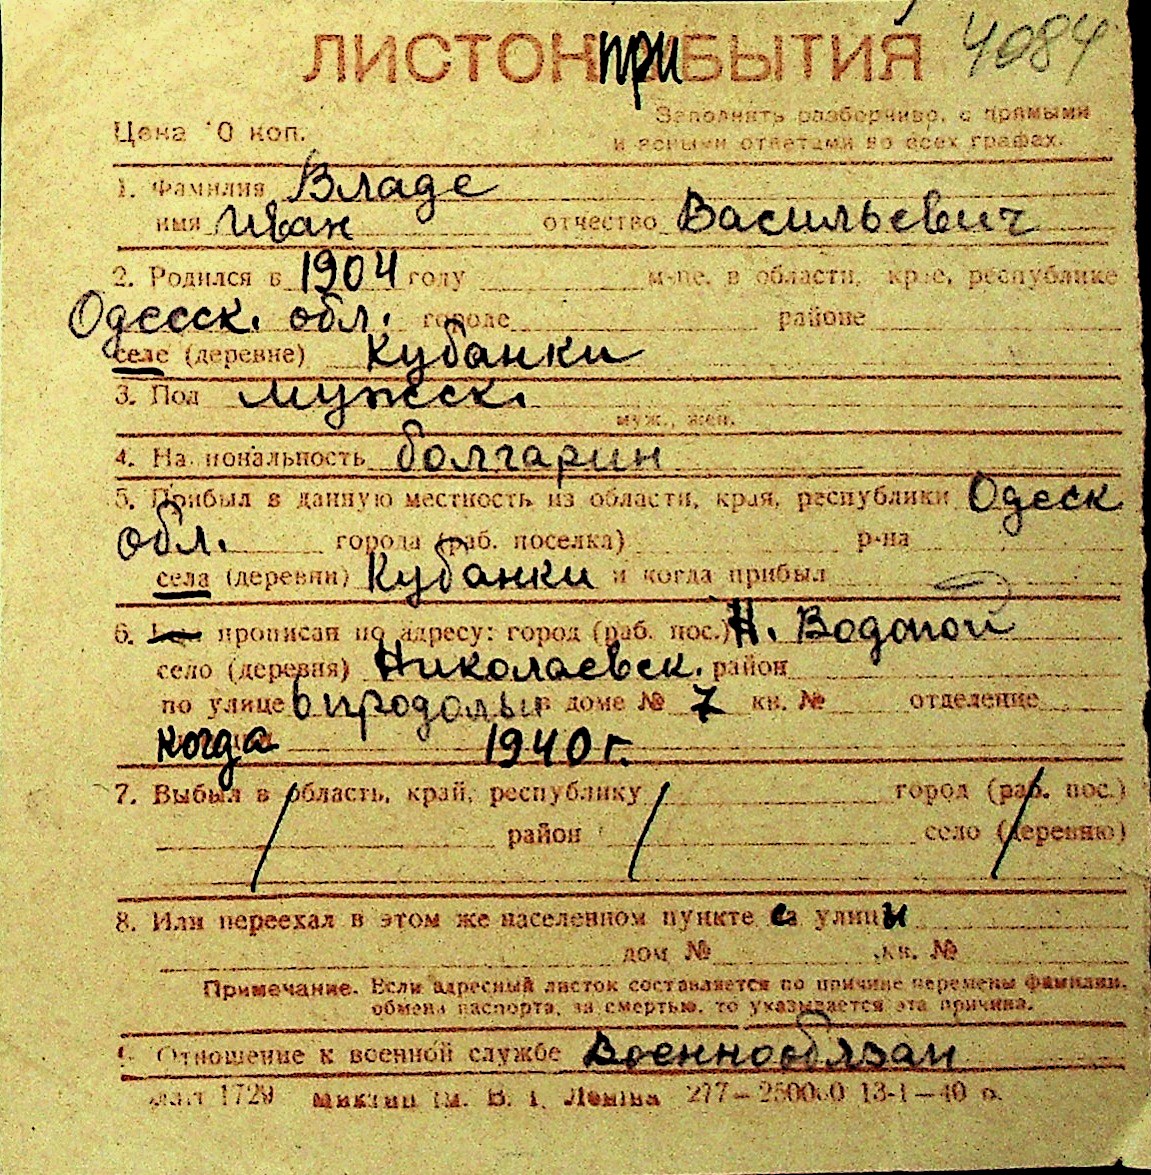 ЛИСТОК ПРИБЫТИЯ 4084
Заполнять разборчиво, с прямыми
Цена 10 коп. и ясными ответами во всех графах.
1. Фамилия Владе
имя Иван отчество Васильевич
2. Родился в 1904 году м-це, в области, крае, республике
Одесск. обл. городе районе
селе (деревне) Кубанки
3. Пол мужск.
муж., жен.
4. Национальность болгарин
5. Прибыл в данную местность из области, края, республики Одесск
обл. города (раб. поселка) р-на
села (деревни) Кубанки и когда прибыл
6. прописан по адресу: город (раб. пос.) Н. Водопой
село (деревня) Николаевск. район
по улице 6 продольн в доме № 7 кв. № отделение
когда 1940 г.
7. Выбыл в область, край, республику город (раб. пос.)
район село (деревню)
8. Или переехал в этом же населенном пункте с улицы
дом № кв. №
Примечание. Если адресный листок составляется по причине перемены фамилии,
обмена паспорта, за смертью, то указывается эта причина.
9. Отношение к военной службе Военнообязан
1729 им. В. И. Ленина 277—250000 13-1—40 г.